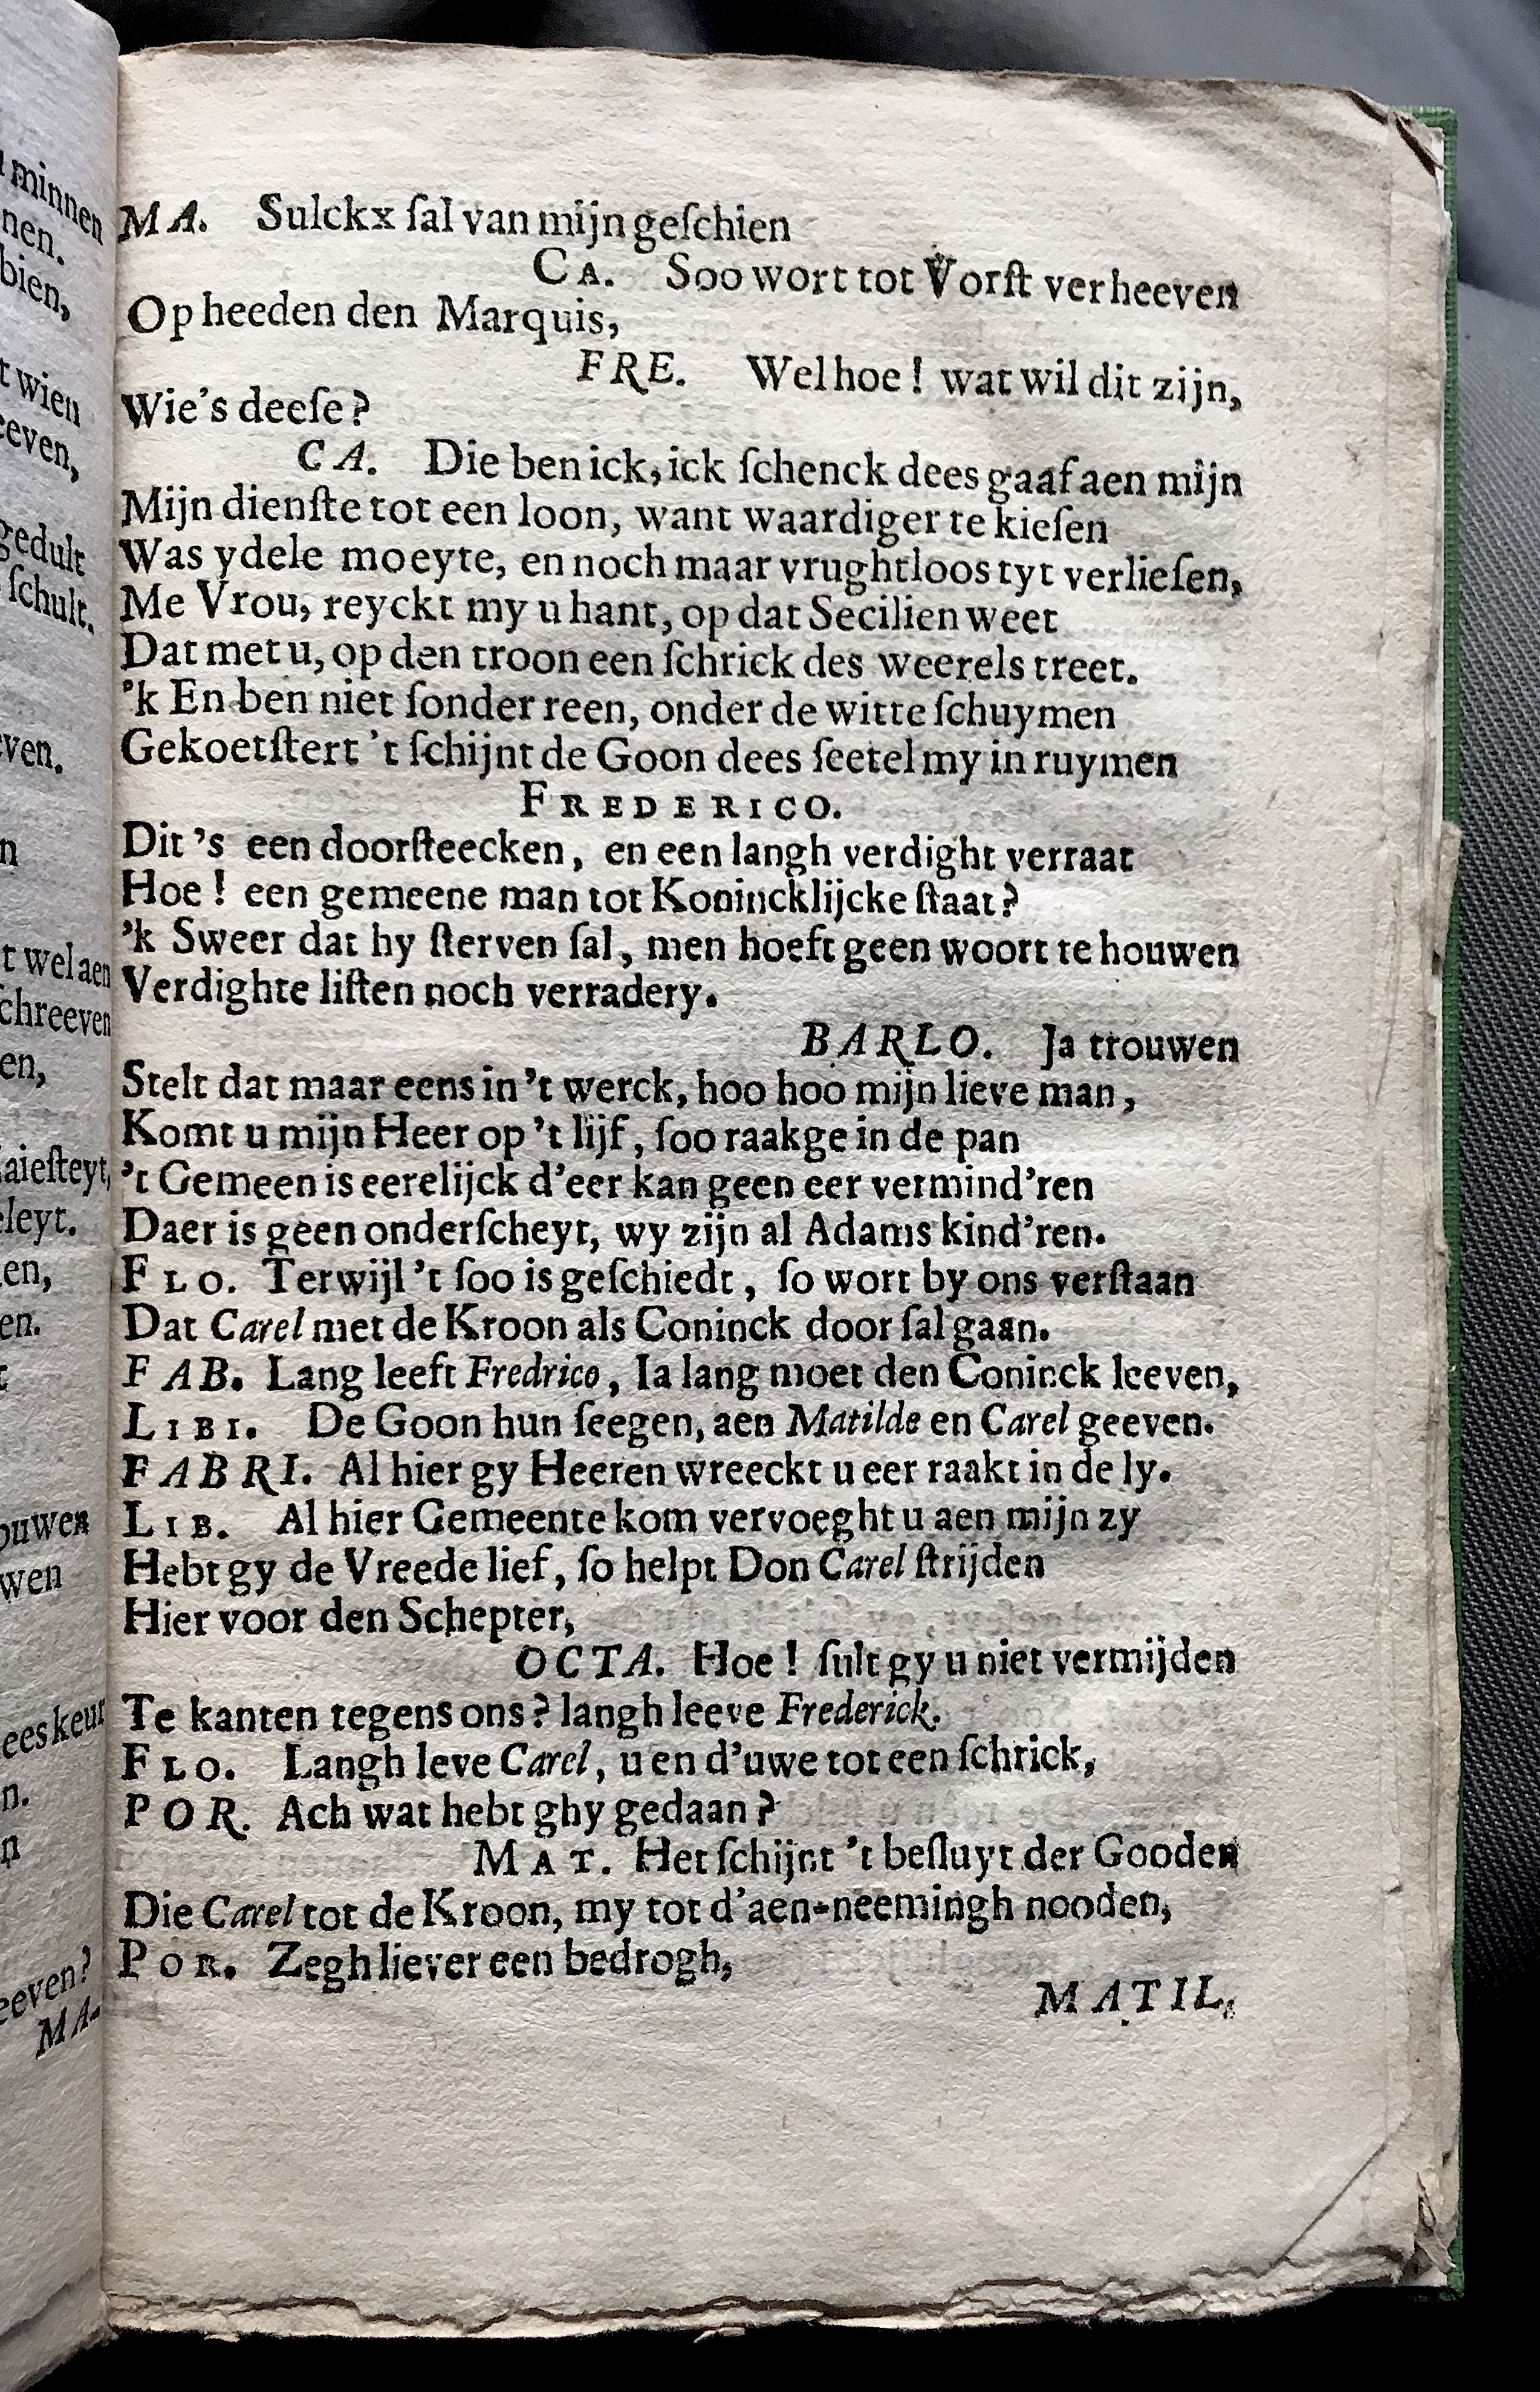 MA. Sulckx ſal van mijn geſchien
CA. Soo wort tot Vorſt verheeven
Op heeden den Marquis,
FRE. Wel hoe! wat wil dit zijn,
Wie's deeſe?
CA. Die ben ick, ick ſchenck dees gaaf aen mijn
Mijn dienſte tot een loon, want waardiger te kieſen
Was ydele moeyte, en noch maar vrughtloos tyt verlieſen,
Me Vrou, reyckt my u hant, op dat Secilien weet
Dat met u, op den troon een ſchrick des weerels treet.
'k En ben niet ſonder reen, onder de witte ſchuymen
Gekoetſtert 't ſchijnt de Goon dees ſeetel my in ruymen
FREDERICO.
Dit 's een doorſteecken, en een langh verdight verraat
Hoe! een gemeene man tot Konincklijcke ſtaat?
'k Sweer dat hy ſterven ſal, men hoeft geen woort te houwen
Verdighte liſten noch verradery.
BARLO. Ja trouwen
Stelt dat maar eens in 't werck, hoo hoo mijn lieve man,
Komt u mijn Heer op 't lijf, ſoo raakge in de pan
't Gemeen is eerelijck d'eer kan geen eer vermind'ren
Daer is geen onderſcheyt, wy zijn al Adams kind'ren.
FLO. Terwijl 't ſoo is geſchiedt, ſo wort by ons verſtaan
Dat Carel met de Kroon als Coninck door ſal gaan.
FAB. Lang leeft Fredrico, Ia lang moet den Coninck leeven,
LIBI. De Goon hun ſeegen, aen Matilde en Carel geeven.
FABRI. Al hier gy Heeren wreeckt u eer raakt in de ly.
LIB. Al hier Gemeente kom vervoeght u aen mijn zy
Hebt gy de Vreede lief, ſo helpt Don Carel ſtrijden
Hier voor den Schepter,
OCTA. Hoe! ſult gy u niet vermijden
Te kanten tegens ons? langh leeve Frederick.
FLO. Langh leve Carel, u en d'uwe tot een ſchrick,
POR. Ach wat hebt ghy gedaan?
MAT. Het ſchijnt 't beſluyt der Gooden
Die Carel tot de Kroon, my tot d'aen-neemingh nooden,
POR. Zegh liever een bedrogh,
MATIL.